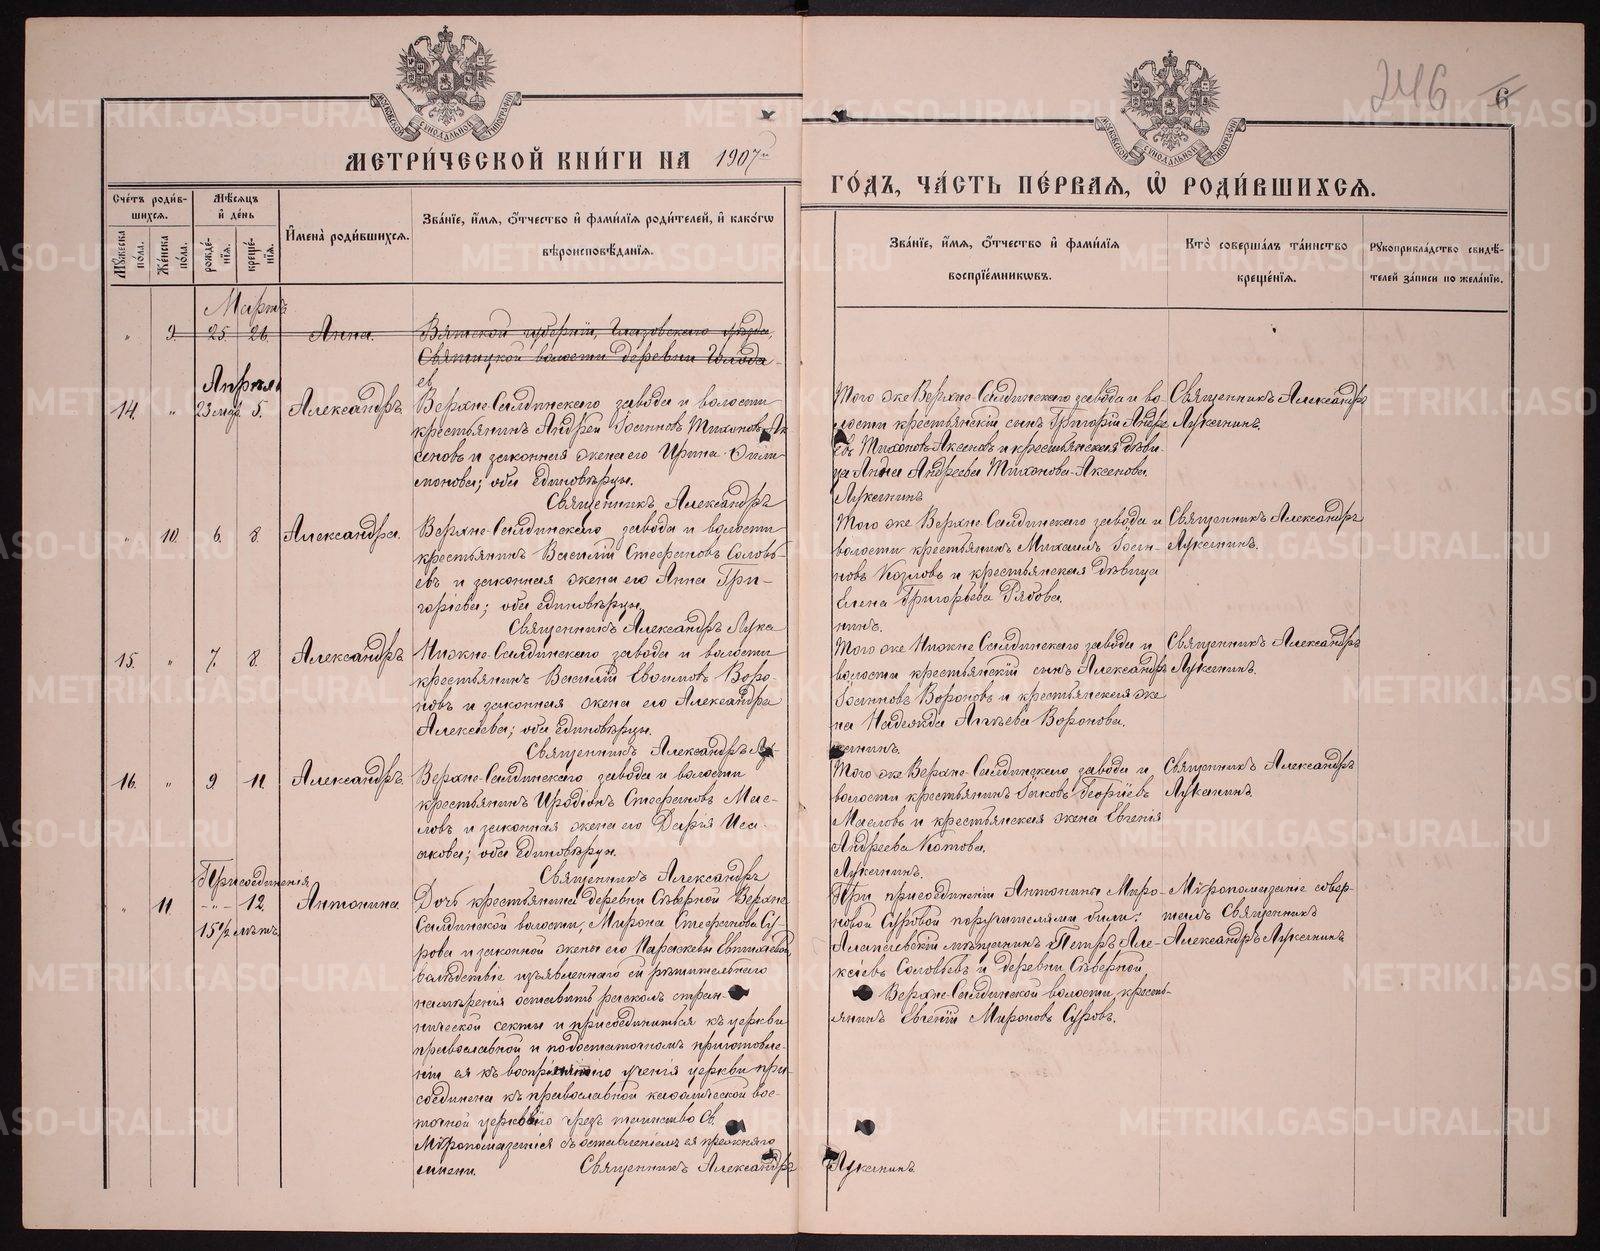 246
6
МОСКОВСКОЙ СУНОДАЛЬНОЙ ТИПОГРАФІИ
МОСКОВСКОЙ СУНОДАЛЬНОЙ ТИПОГРАФІИ
МЕТРИ́ЧЕСКОЙ КНИ́ГИ НА 1907й
ГО́ДЪ, ЧА́СТЬ ПЕ́РВАЯ, Ѡ҆ РОДИ́ВШИХСЯ.
Сче́тъ роди́в-
шихся.
Мꙋжеска по́ла.
Же́нска по́ла.
Мѣ́сяцъ
и҆ де́нь
рожде́-
нїя.
креще́-
нїя.
И҆мена̀ роди́вшихся.
Зва́нїе, и҆́мя, ѻ҆́тчество и҆ фами́лїя роди́телей, и҆ како́гѡ
вѣроисповѣ́данїя.
Зва́нїе, и҆́мя, ѻ҆́тчество и҆ фами́лїя
воспрїе́мникѡвъ.
Кто̀ соверша́лъ та́инство
креще́нїя.
Рꙋкоприкла́дство свидѣ́-
телей за́писи по жела́нїю.
Мартъ
" 9. 25 26 Анна.
Вятской губерніи, Глазовскаго уѣзда,
Святицкой волости деревни Голода-
ев
Апрѣля
14. " 23 мар. 5. Александръ.
Верхне-Салдинскаго завода и волости
крестьянинъ Андрей Іоанновъ Тихоновъ-Ак
сеновъ и законная жена его Ирина Фили
монова; оба единовѣрцы.
Священникъ Александръ
Того же Верхне-Салдинскаго завода и во
лости крестьянскій сынъ Григорій Андре
евъ Тихоновъ-Аксеновъ и крестьянская дѣви-
ца Анна Андреева Тихонова-Аксенова
Луканинъ
Священникъ Александръ
Луканинъ.
" 10. 6. 8. Александра.
Верхне-Салдинскаго завода и волости
крестьянинъ Василій Стефановъ Соловь-
евъ и законная жена его Анна Гри-
горіева; оба единовѣрцы.
Священникъ Александръ Лука
Того же Верхне-Салдинскаго завода и
волости крестьянинъ Михаилъ Іоан-
новъ Козловъ и крестьянская дѣвица
Елена Григорьева Рябова.
нинъ.
Священникъ Александръ
Луканинъ.
15. " 7. 8. Александръ.
Нижне-Салдинскаго завода и волости
крестьянинъ Василій Евфимовъ Воро-
новъ и законная жена его Александра
Алексѣева; оба единовѣрцы.
Священникъ Александръ Лу-
Того же Нижне-Салдинскаго завода и
волости крестьянскій сынъ Александръ
Іоанновъ Вороновъ и крестьянская же
на Надежда Воронова.
канинъ.
Священникъ Александръ
Луканинъ.
16. " 9. 11. Александръ.
Верхне-Салдинскаго завода и волости
крестьянинъ Иродіонъ Стефановъ Мас-
ловъ и законная жена его Дарія Иса-
акова; оба единовѣрцы.
Священникъ Александръ
Того же Верхне-Салдинскаго завода и
волости крестьянинъ Іаковъ Георгіевъ
Масловъ и крестьянская жена Евгенія
Андреева Котова.
Луканинъ.
Священникъ Александръ
Луканинъ.
Присоединенія
" 11. - " - 12. Антонина.
15 1/2 лѣтъ.
Дочь крестьянина деревни Сѣверной Верхне
Салдинской волости, Мирона Стефанова Су-
рова и законной жены его Параскевы Евтихіевой,
вслѣдствіе изъявленнаго ей рѣшительнаго
намѣренія оставить расколъ стран-
нической секты и присоединиться къ церкви
православной и по достаточномъ приготовле-
ніи ея къ воспріятію ученія церкви при-
соединена къ православной каѳолической вос-
точной церкви чрезъ таинство Св.
Мѵропомазанія съ оставленіемъ ея прежняго
имени.
Священникъ Александръ
При присоединеніи Антонины Миро-
новой Суровой поручителями были:
Алапаевскій мѣщанинъ Петръ Але-
ксіевъ Соловьевъ и деревни Сѣверной,
Верхне-Салдинской волости, кресть-
янинъ Евгеній Мироновъ Суровъ.
Луканинъ
Мѵропомазаніе совер-
шалъ Священникъ
Александръ Луканинъ
METRIKI.GASO-URAL.RU